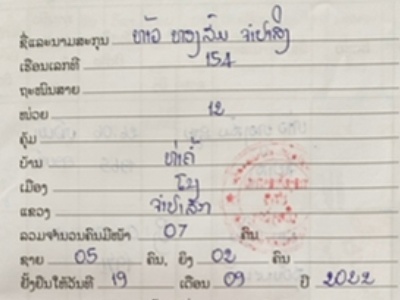 ຊື່ແລະນາມສະກຸນ ທ້າວ ທອງສົມ ຈຳປາສິງ
ເຮືອນເລກທີ 154
ຖະໜົນສາຍ
ໜ່ວຍ 12
ຄຸ້ມ
ບ້ານ ທ່າຄໍ້
ເມືອງ ໂຂງ
ແຂວງ ຈຳປາສັກ
ລວມຈຳນວນຄົນມີໜ້າ 07 ຄົນ
ຊາຍ 05 ຄົນ, ຍິງ 02 ຄົນ
ຢັ້ງຢືນໃຫ້ວັນທີ 19 ເດືອນ 09 ປີ 2022